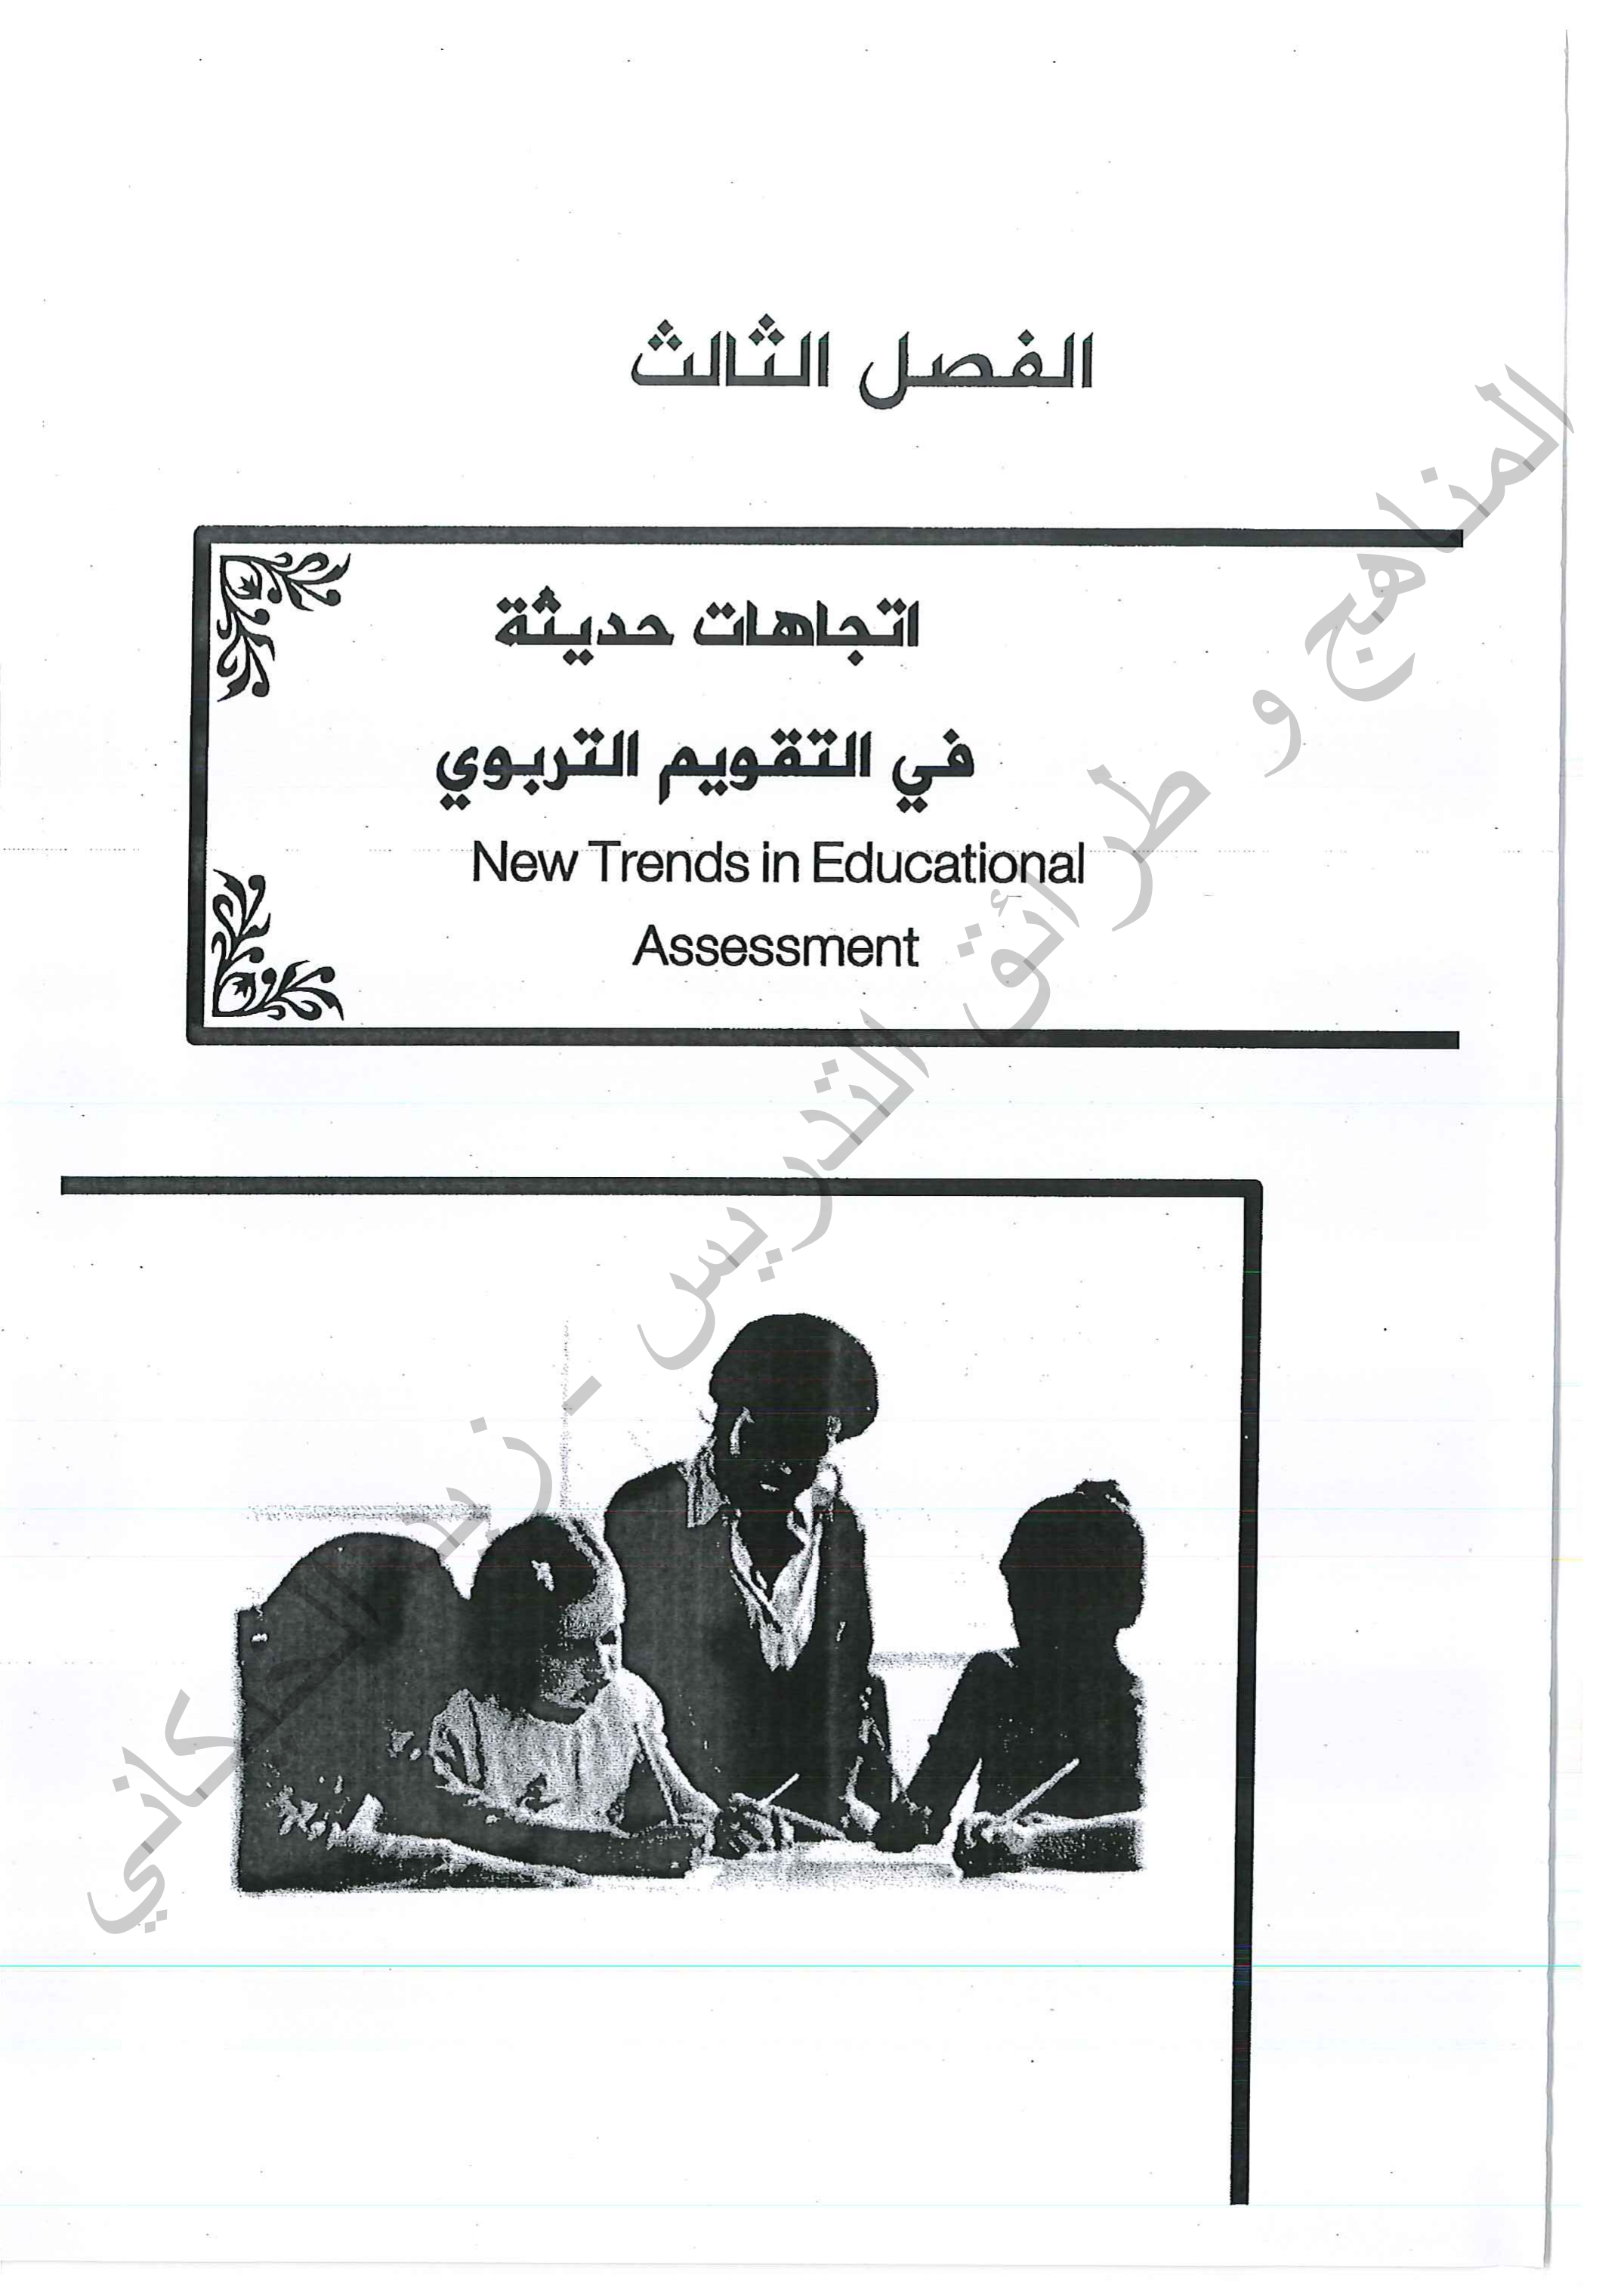 الفصل الثالث
اتجاهات حديثة
في التقويم التربوي
New Trends in Educational
Assessment
المناهج و طرائق التدريس - زيد الحكاني